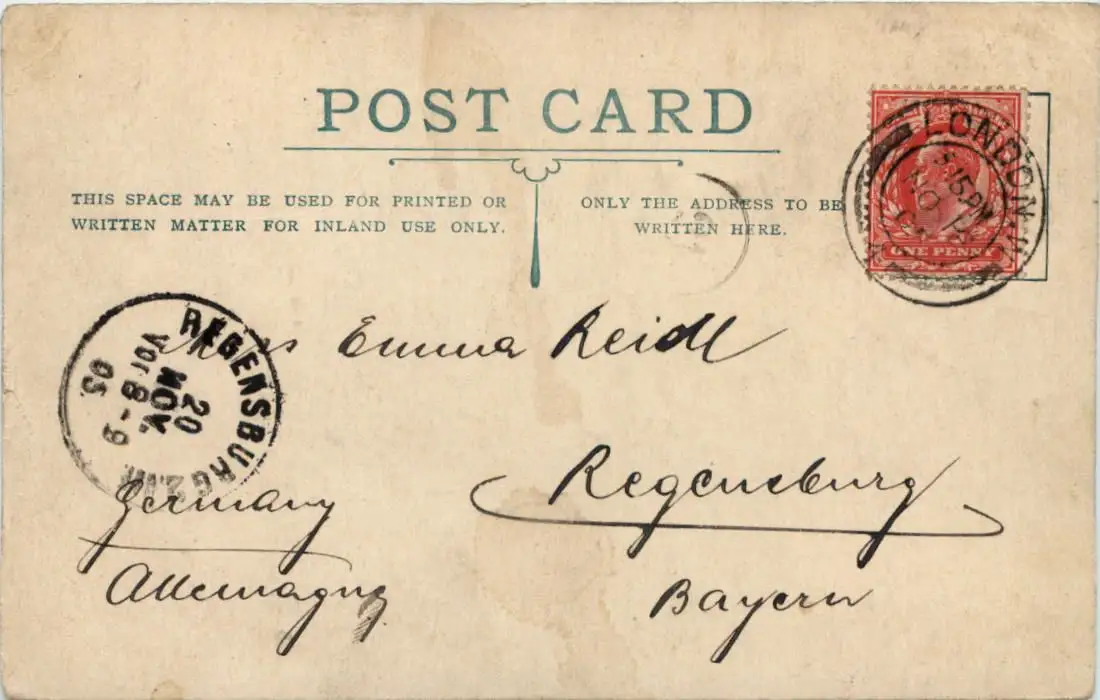 POST CARD
THIS SPACE MAY BE USED FOR PRINTED OR
WRITTEN MATTER FOR INLAND USE ONLY.
ONLY THE ADDRESS TO BE
WRITTEN HERE.
LONDON
ONE PENNY
REGENSBURG
20
NOV.
Vor 8-9
05.
Miss Emma Reidl
Regensburg
Bayern
Germany
Allemagne